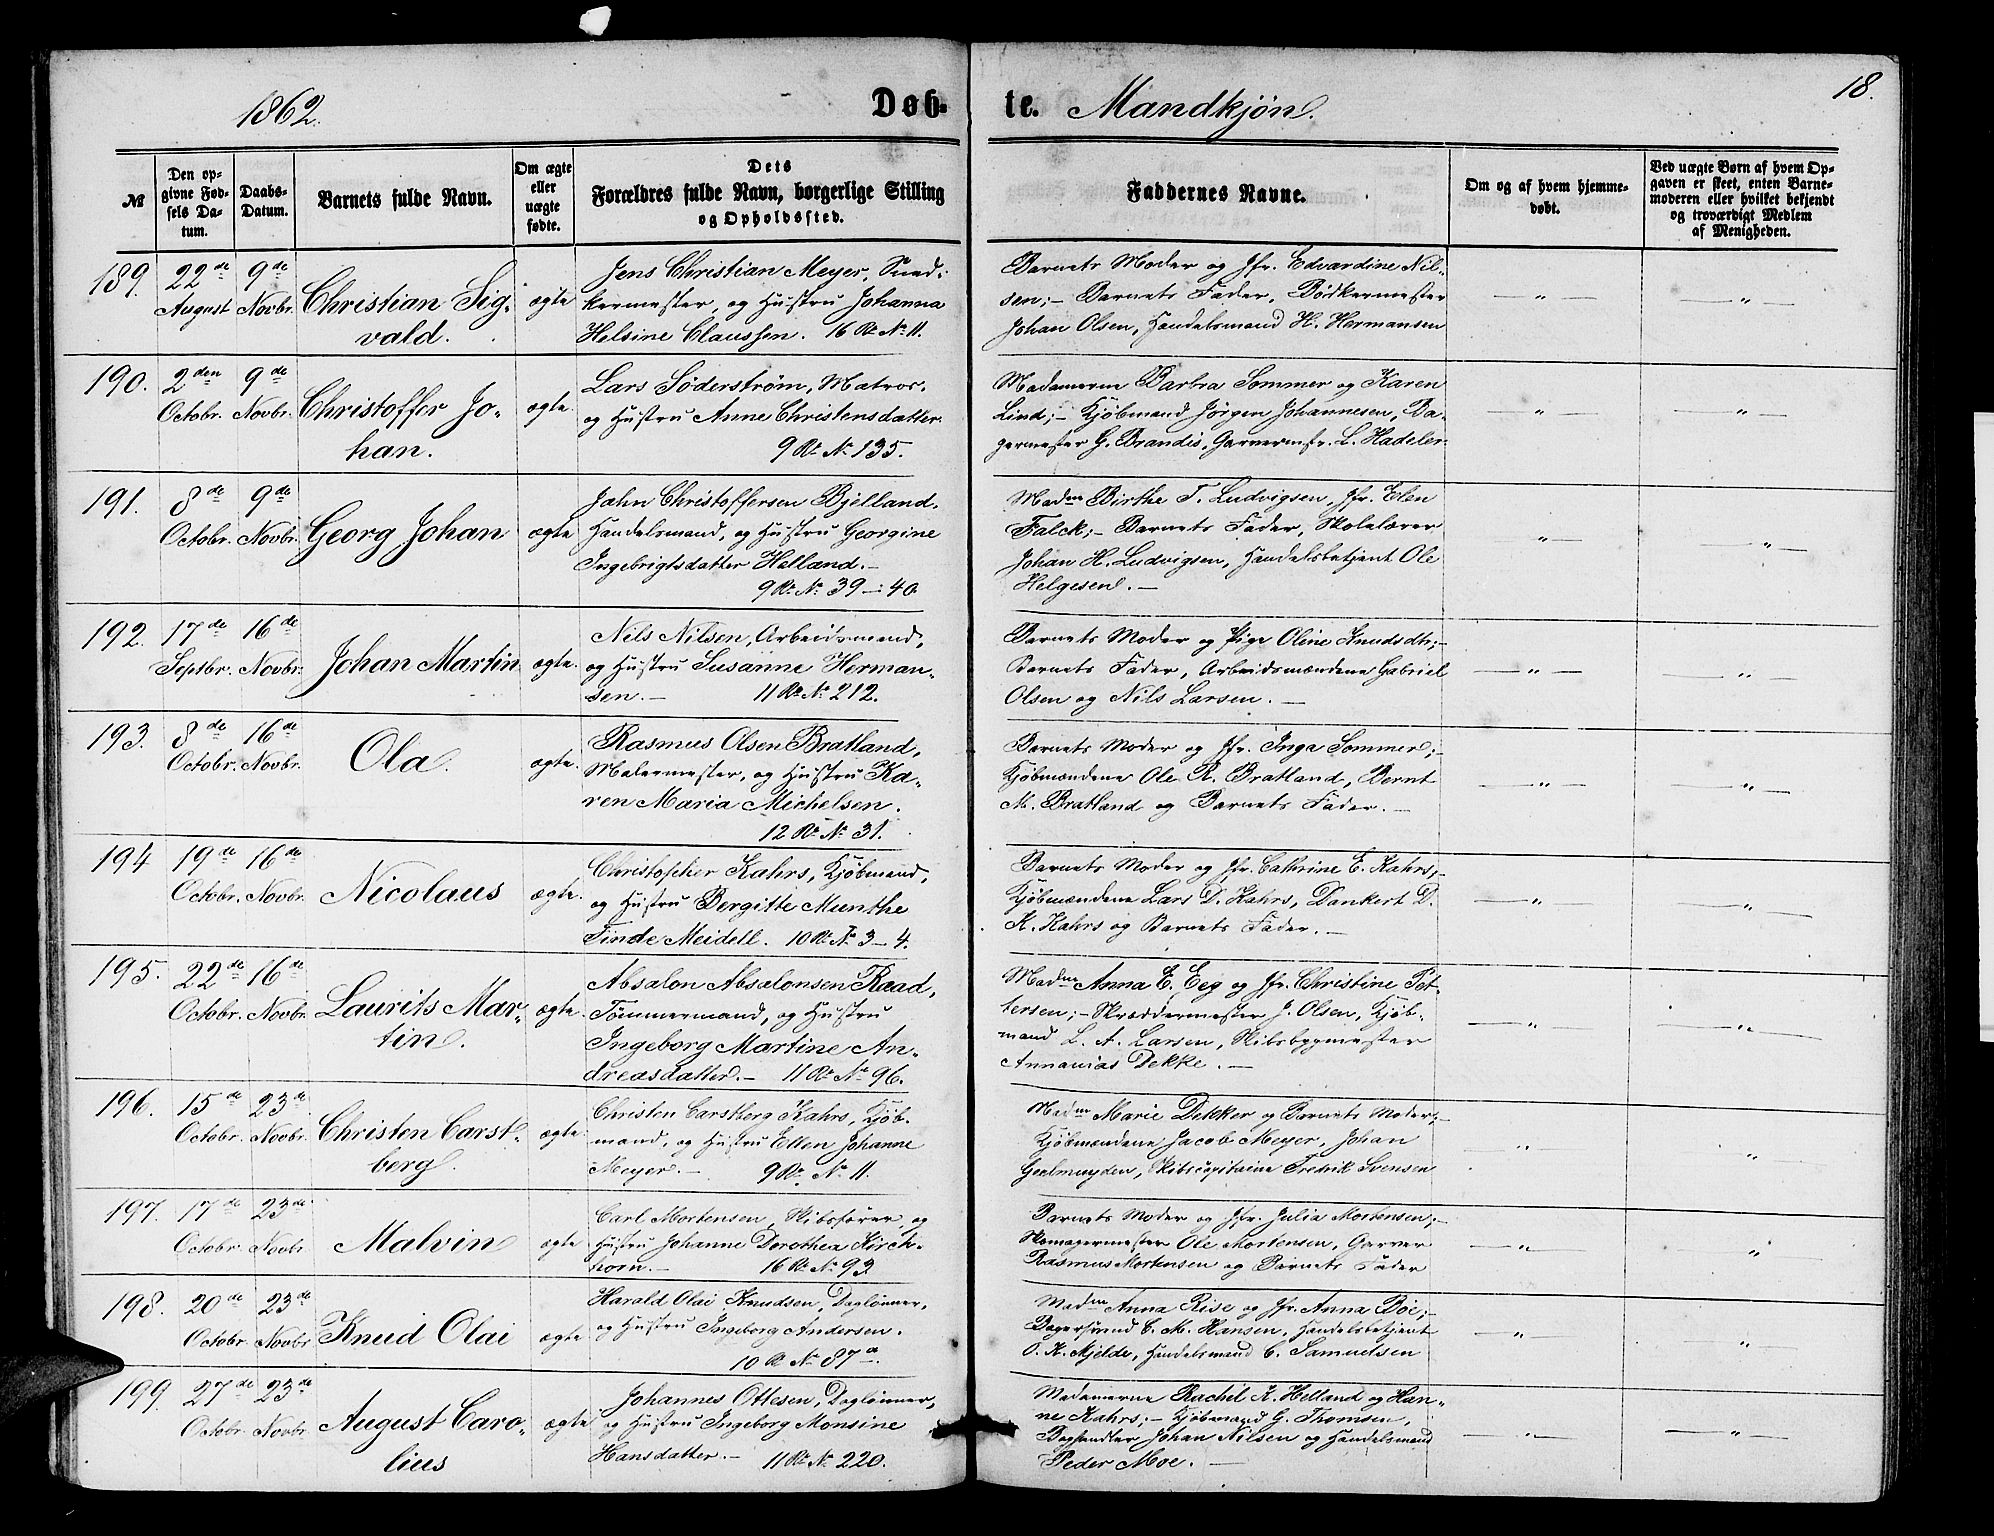 1862.
Døb-
te. Mandkjøn.
18.
№
Den op-
givne Fød-
sels Da-
tum.
Daabs-
Datum.
Barnets fulde Navn.
Om ægte
eller
uægte
fødte.
Dets
Forældres fulde Navn, borgerlige Stilling
og Opholdssted.
Faddernes Navne.
Om og af hvem hjemme-
døbt.
Ved uægte Børn af hvem Op-
gaven er skeet, enten Barne-
moderen eller hvilket bekjendt
og troværdigt Medlem
af Menigheden.
189. 22de August 9de Novbr. Christian Sig-
vald.
ægte
Jens Christian Meyer, Sned-
kermester, og Hustru Johanna
Helsine Claussen. 16 Rd. No. 11.
Barnets Moder og Jfr. Edvardine Nil-
sen; - Barnets Fader, Bødkermester
Johan Olsen, Handelsmand H. Hermansen
— " —
— " —
190. 2den Octobr. 9de Novbr. Christoffer Jo-
han.
ægte
Lars Söderström, Matros,
og Hustru Anne Christensdatter.
9 Rd. No. 135.
Madamerne Barbra Sommer og Karen
Lind; - Kjøbmand Jörgen Johannesen, Ba-
germester G. Brandis, Garvermstr. L. Hadeler.
— " —
— " —
191. 8de Octobr. 9de Novbr. Georg Johan
ægte
Jahn Christoffersen Bjelland,
Handelsmand, og Hustru Georgine
Ingebrigtsdatter Helland. -
9 Rd. No. 39 - 40.
Madm Birthe T. Ludvigsen, Jfr. Elen
Falck; - Barnets Fader, Skolelærer
Johan H. Ludvigsen, Handelsbetjent Ole
Helgesen. -
— " —
— " —
192. 17de Septbr. 16de Novbr. Johan Martin
ægte.
Nils Nilsen, Arbeidsmand,
og Hustru Susanne Herman-
sen. - 11 Rd. No. 212.
Barnets Moder og Pige Oline Knudsdtr; -
Barnets Fader, Arbeidsmændene Gabriel
Olsen og Nils Larsen. -
— " —
— " —
193. 8de Octobr. 16de Novbr. Ola.
ægte.
Rasmus Olsen Bratland,
Malermester, og Hustru Ka-
ren Maria Michelsen.
12 Rd. No. 31.
Barnets Moder og Jfr. Inga Sommer; -
Kjöbmændene Ole R. Bratland, Bernt
M. Bratland og Barnets Fader. -
— " —
— " —
194 19de Octobr. 16de Novbr. Nicolaus
ægte.
Christopher Kahrs, Kjöbmand,
og Hustru Bergitte Munthe
Finde Meidell. 10 Rd. No. 3 - 4.
Barnets Moder og Jfr. Cathrine E. Kahrs; -
Kjöbmændene Lars D. Kahrs, Dankert D.
K. Kahrs og Barnets Fader. -
— " —
— " —
195. 22de Octobr. 16de Novbr. Laurits Mar-
tin.
ægte.
Absalon Absalonsen Raad,
Tömmermand, og Hustru
Ingeborg Martine An-
dreasdatter. - 11 Rd. No. 96.
Madme Anna E. Eeg og Jfr. Christine Pet-
tersen; - Skræddermester J. Olsen, Kjöb-
mand L. A. Larsen, Skibsbygmester
Annanias Dekke. -
— " —
— " —
196. 15de Octobr. 23de Novbr. Christen Carst-
berg.
ægte
Christen Carstberg Kahrs, Kjöb-
mand, og Hustru Ellen Johanne
Meyer. - 9 Rd. No. 11.
Madm Marie Dekker og Barnets Moder; -
Kjöbmændene Jacob Meyer, Johan
Geelmuyden, Skibscapitaine Fredrik Svensen
— " —
"
197. 17de Octobr. 23de Novbr. Malvin
ægte
Carl Mortensen, Skibsförer, og
Hustru Johanne Dorothea Kirch-
horn. - 16 Rd. No. 93
Barnets Moder og Jfr. Julia Mortensen; -
Skomagermester Ole Mortensen, Garver
Rasmus Mortensen og Barnets Fader
— " —
"
198. 20de Octobr. 23de Novbr. Knud Olai
ægte
Harald Olai Knudsen, Daglönner,
og Hustru Ingeborg Andersen.
10 R No. 87a.
Madm Anna Rise og Jfr. Anna Böe; -
Bagersvend C. M. Hansen, Handelsbetjent
O. K. Mjelde, Handelsmand C. Samuelsen
"
"
199. 27de Octobr. 23de Novbr. August Caro-
lius
ægte
Johannes Ottesen, Daglönner,
og Hustru Ingeborg Monsine
Hansdatter. - 11 Rd. No. 220.
Madamerne Rachil K. Helland og Han-
ne Kahrs; - Kjöbmand G. Thomsen,
Boghandler Johan Nilsen og Handelsmand
Peder Moe. -
— " —
— " —